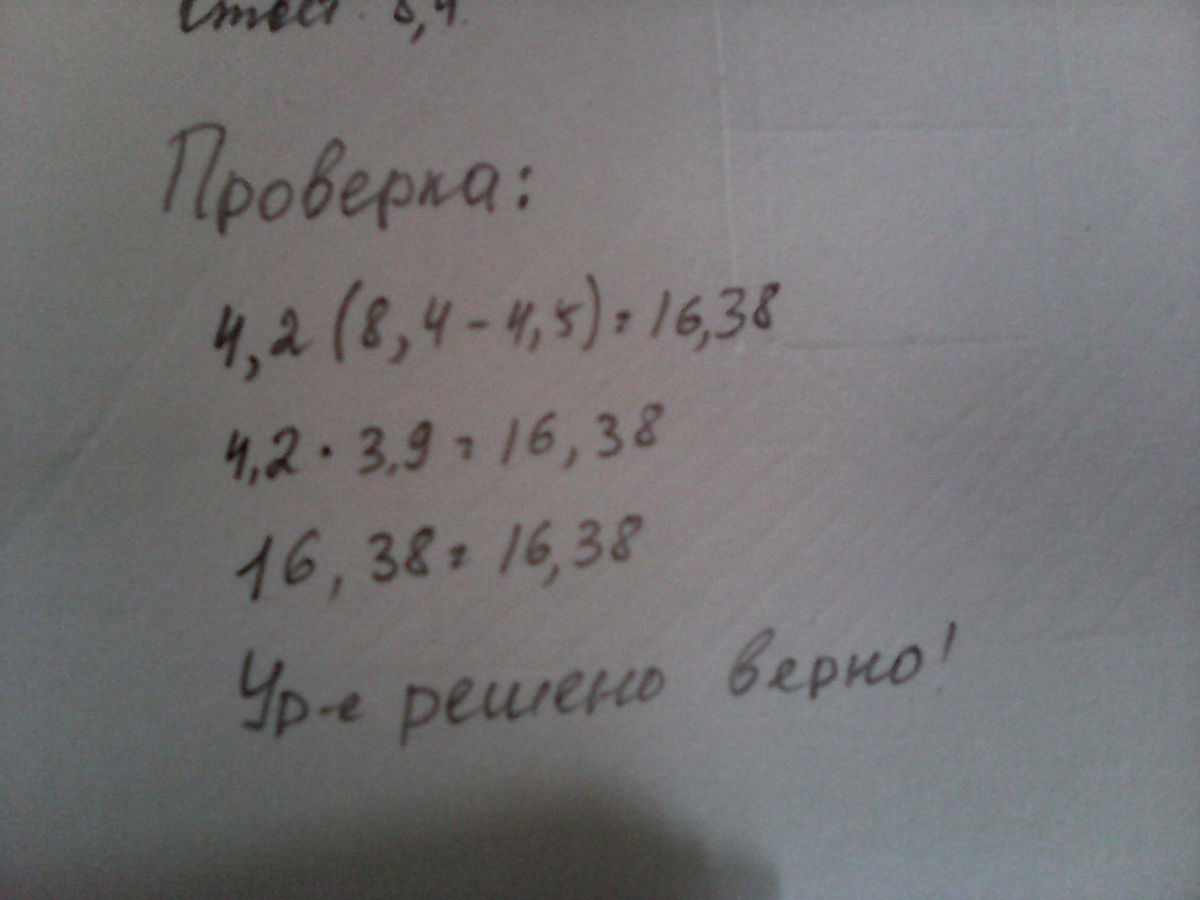 Ответ: 8,4.
Проверка:
4,2(8,4-4,5)=16,38
4,2·3,9=16,38
16,38=16,38
Ур-е решено верно!